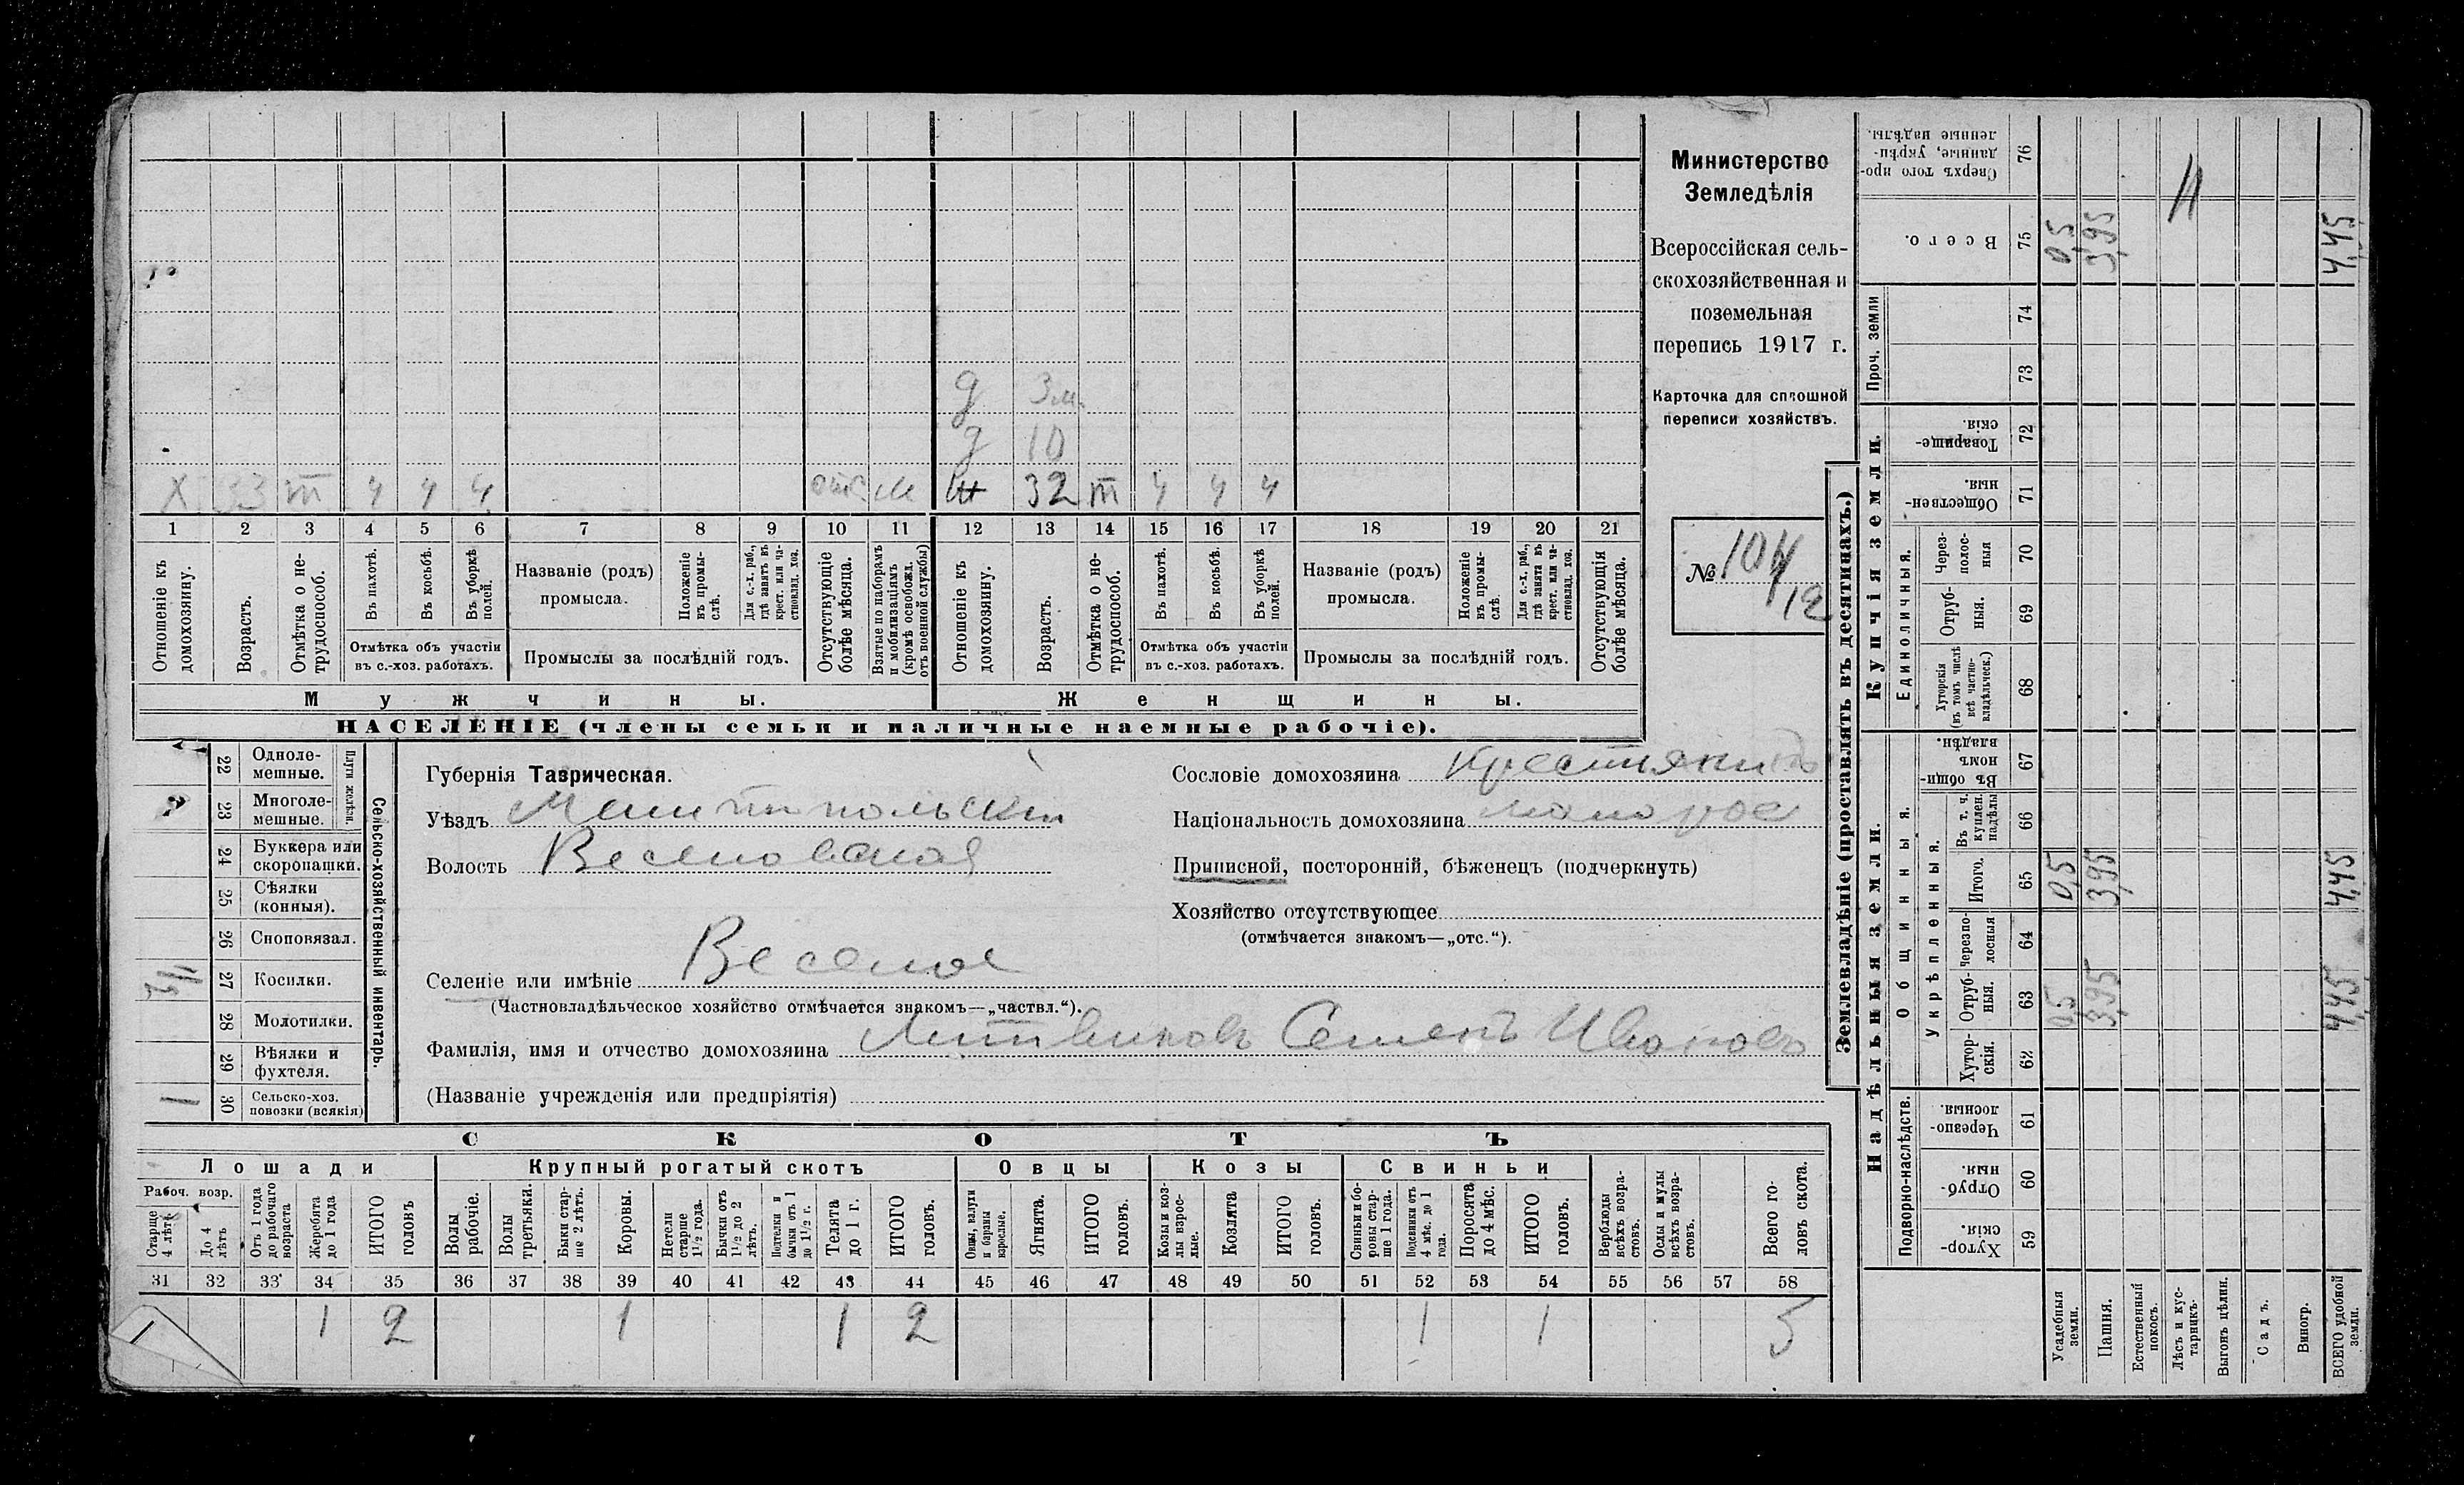 Министерство
Земледѣлія
Всероссійская сель-
скохозяйственная и
поземельная
перепись 1917 г.
Карточка для сплошной
переписи хозяйствъ.
№ 104
12
д 3 м.
д 10
Х 33 m 4 4 4 отс м ж 32 m 4 4 4
1 2 3 4 5 6 7 8 9 10 11 12 13 14 15 16 17 18 19 20 21
Отношеніе къ домохозяину.
Возрастъ.
Отмѣтка о не-трудоспособ.
Въ пахотѣ.
Въ косьбѣ.
Въ уборкѣ полей.
Отмѣтка объ участіи
въ с.-хоз. работахъ.
Названіе (родъ)
промысла.
Положеніе въ промы-слѣ.
Для с.-х. раб., гдѣ занятъ въ крест. или ча-стновлад. хоз.
Промыслы за послѣдній годъ.
Отсутствующіе болѣе мѣсяца.
Взятые по наборамъ и мобилизаціямъ (кромѣ освобожд. отъ военной службы)
Отношеніе къ домохозяину.
Возрастъ.
Отмѣтка о не-трудоспособ.
Въ пахотѣ.
Въ косьбѣ.
Въ уборкѣ полей.
Отмѣтка объ участіи
въ с.-хоз. работахъ.
Названіе (родъ)
промысла.
Положеніе въ промы-слѣ.
Для с.-х. раб., гдѣ занята въ крест. или ча-стновлад. хоз.
Промыслы за послѣдній годъ.
Отсутствующія болѣе мѣсяца.
Мужчины.
Женщины.
НАСЕЛЕНІЕ (члены семьи и наличные наемные рабочіе).
Сельско-хозяйственный инвентарь.
Плуги желѣзн.
22 Одноле-мешные.
23 Многоле-мешные.
24 Буккера или скоропашки.
25 Сѣялки (конныя).
26 Сноповязал.
27 Косилки.
28 Молотилки.
29 Вѣялки и фухтеля.
1 30 Сельско-хоз. повозки (всякія)
Губернія Таврическая.
Уѣздъ Мелитопольскій
Волость Веселовская
Селеніе или имѣніе Веселое
(Частновладѣльческое хозяйство отмѣчается знакомъ—„частвл.“).
Фамилія, имя и отчество домохозяина Литвиновъ Семенъ Ивановъ
(Названіе учрежденія или предпріятія)
Сословіе домохозяина крестьянинъ
Національность домохозяина малорос
Приписной, посторонній, бѣженецъ (подчеркнуть)
Хозяйство отсутствующее
(отмѣчается знакомъ—„отс.“).
СКОТЪ
Лошади
Крупный рогатый скотъ
Овцы
Козы
Свиньи
Рабоч. возр.
Старше 4 лѣтъ
До 4 лѣтъ
Отъ 1 года до рабочаго возраста
Жеребята до 1 года
ИТОГО головъ
Волы рабочіе.
Волы третьяки.
Быки стар-ше 2 лѣтъ.
Коровы.
Нетели старше 1 1/2 года.
Бычки отъ 1 1/2 до 2 лѣтъ.
Подтелки и бычки отъ 1 до 1 1/2 г.
Телята до 1 г.
ИТОГО головъ.
Овцы, валухи и бараны взрослые.
Ягнята.
ИТОГО головъ.
Козы и коз-лы взрос-лые.
Козлята
ИТОГО головъ.
Свиньи и бо-ровы стар-ше 1 года.
Подсвинки отъ 4 мѣс. до 1 года.
Поросята до 4 мѣс.
ИТОГО головъ.
Верблюды всѣхъ возра-стовъ.
Ослы и мулы всѣхъ возра-стовъ.
Всего го-ловъ скота.
31 32 33 34 35 36 37 38 39 40 41 42 43 44 45 46 47 48 49 50 51 52 53 54 55 56 57 58
1 1 2 1 1 2 1 1 5
Землевладѣніе (проставлять въ десятинахъ.)
Надѣльныя земли.
Купчія земли.
Проч. земли
Подворно-наслѣдств.
Общинныя.
Укрѣпленныя.
Единоличныя.
59 Хутор-скія.
60 Отруб-ныя.
61 Черезпо-лосныя.
62 Хутор-скія.
63 Отруб-ныя. 0,5 3,95 4,45
64 Черезпо-лосныя
65 Итого. 0,5 3,95 4,45
66 Въ т. ч. куплен. надѣлы
67 Въ общин-номъ владѣн.
68 Хуторскія (въ томъ числѣ всѣ частно-владѣльческ.)
69 Отруб-ныя.
70 Через-полос-ныя
71 Обществен-ныя.
72 Товарище-скія.
73
74
75 Всего. 0,5 3,95 4,45
76 Сверхъ того про-данные, укрѣп-ленные надѣлы.
Усадебныя земли.
Пашня.
Естественный покосъ.
Лѣсъ и кус-тарникъ.
Выгонъ цѣлин.
Садъ.
Виногр.
ВСЕГО удобной земли.